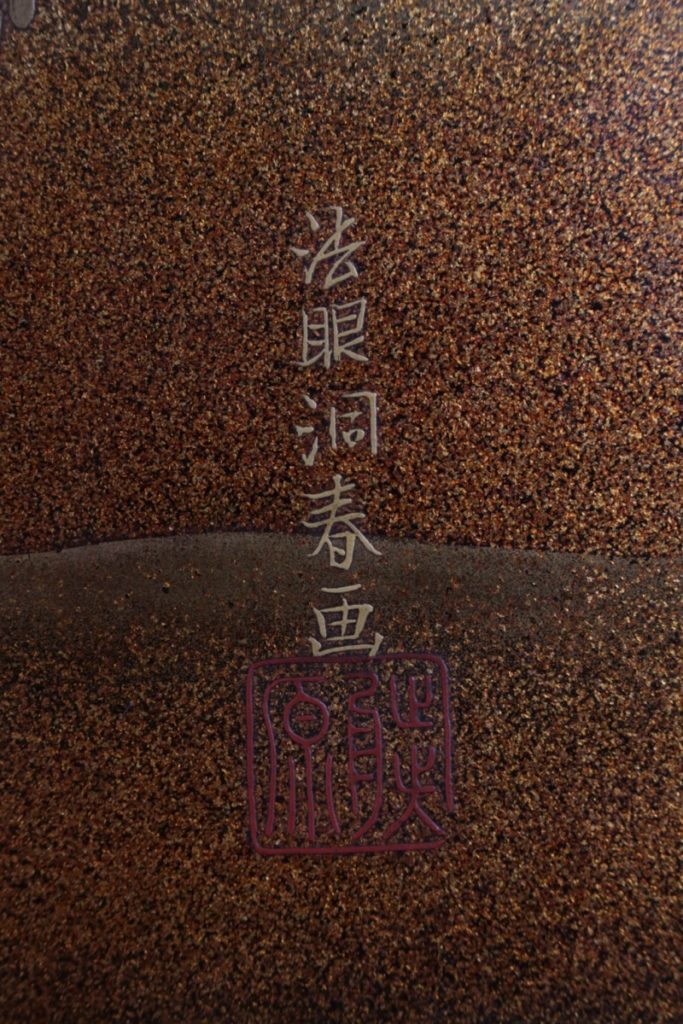 法眼洞春画